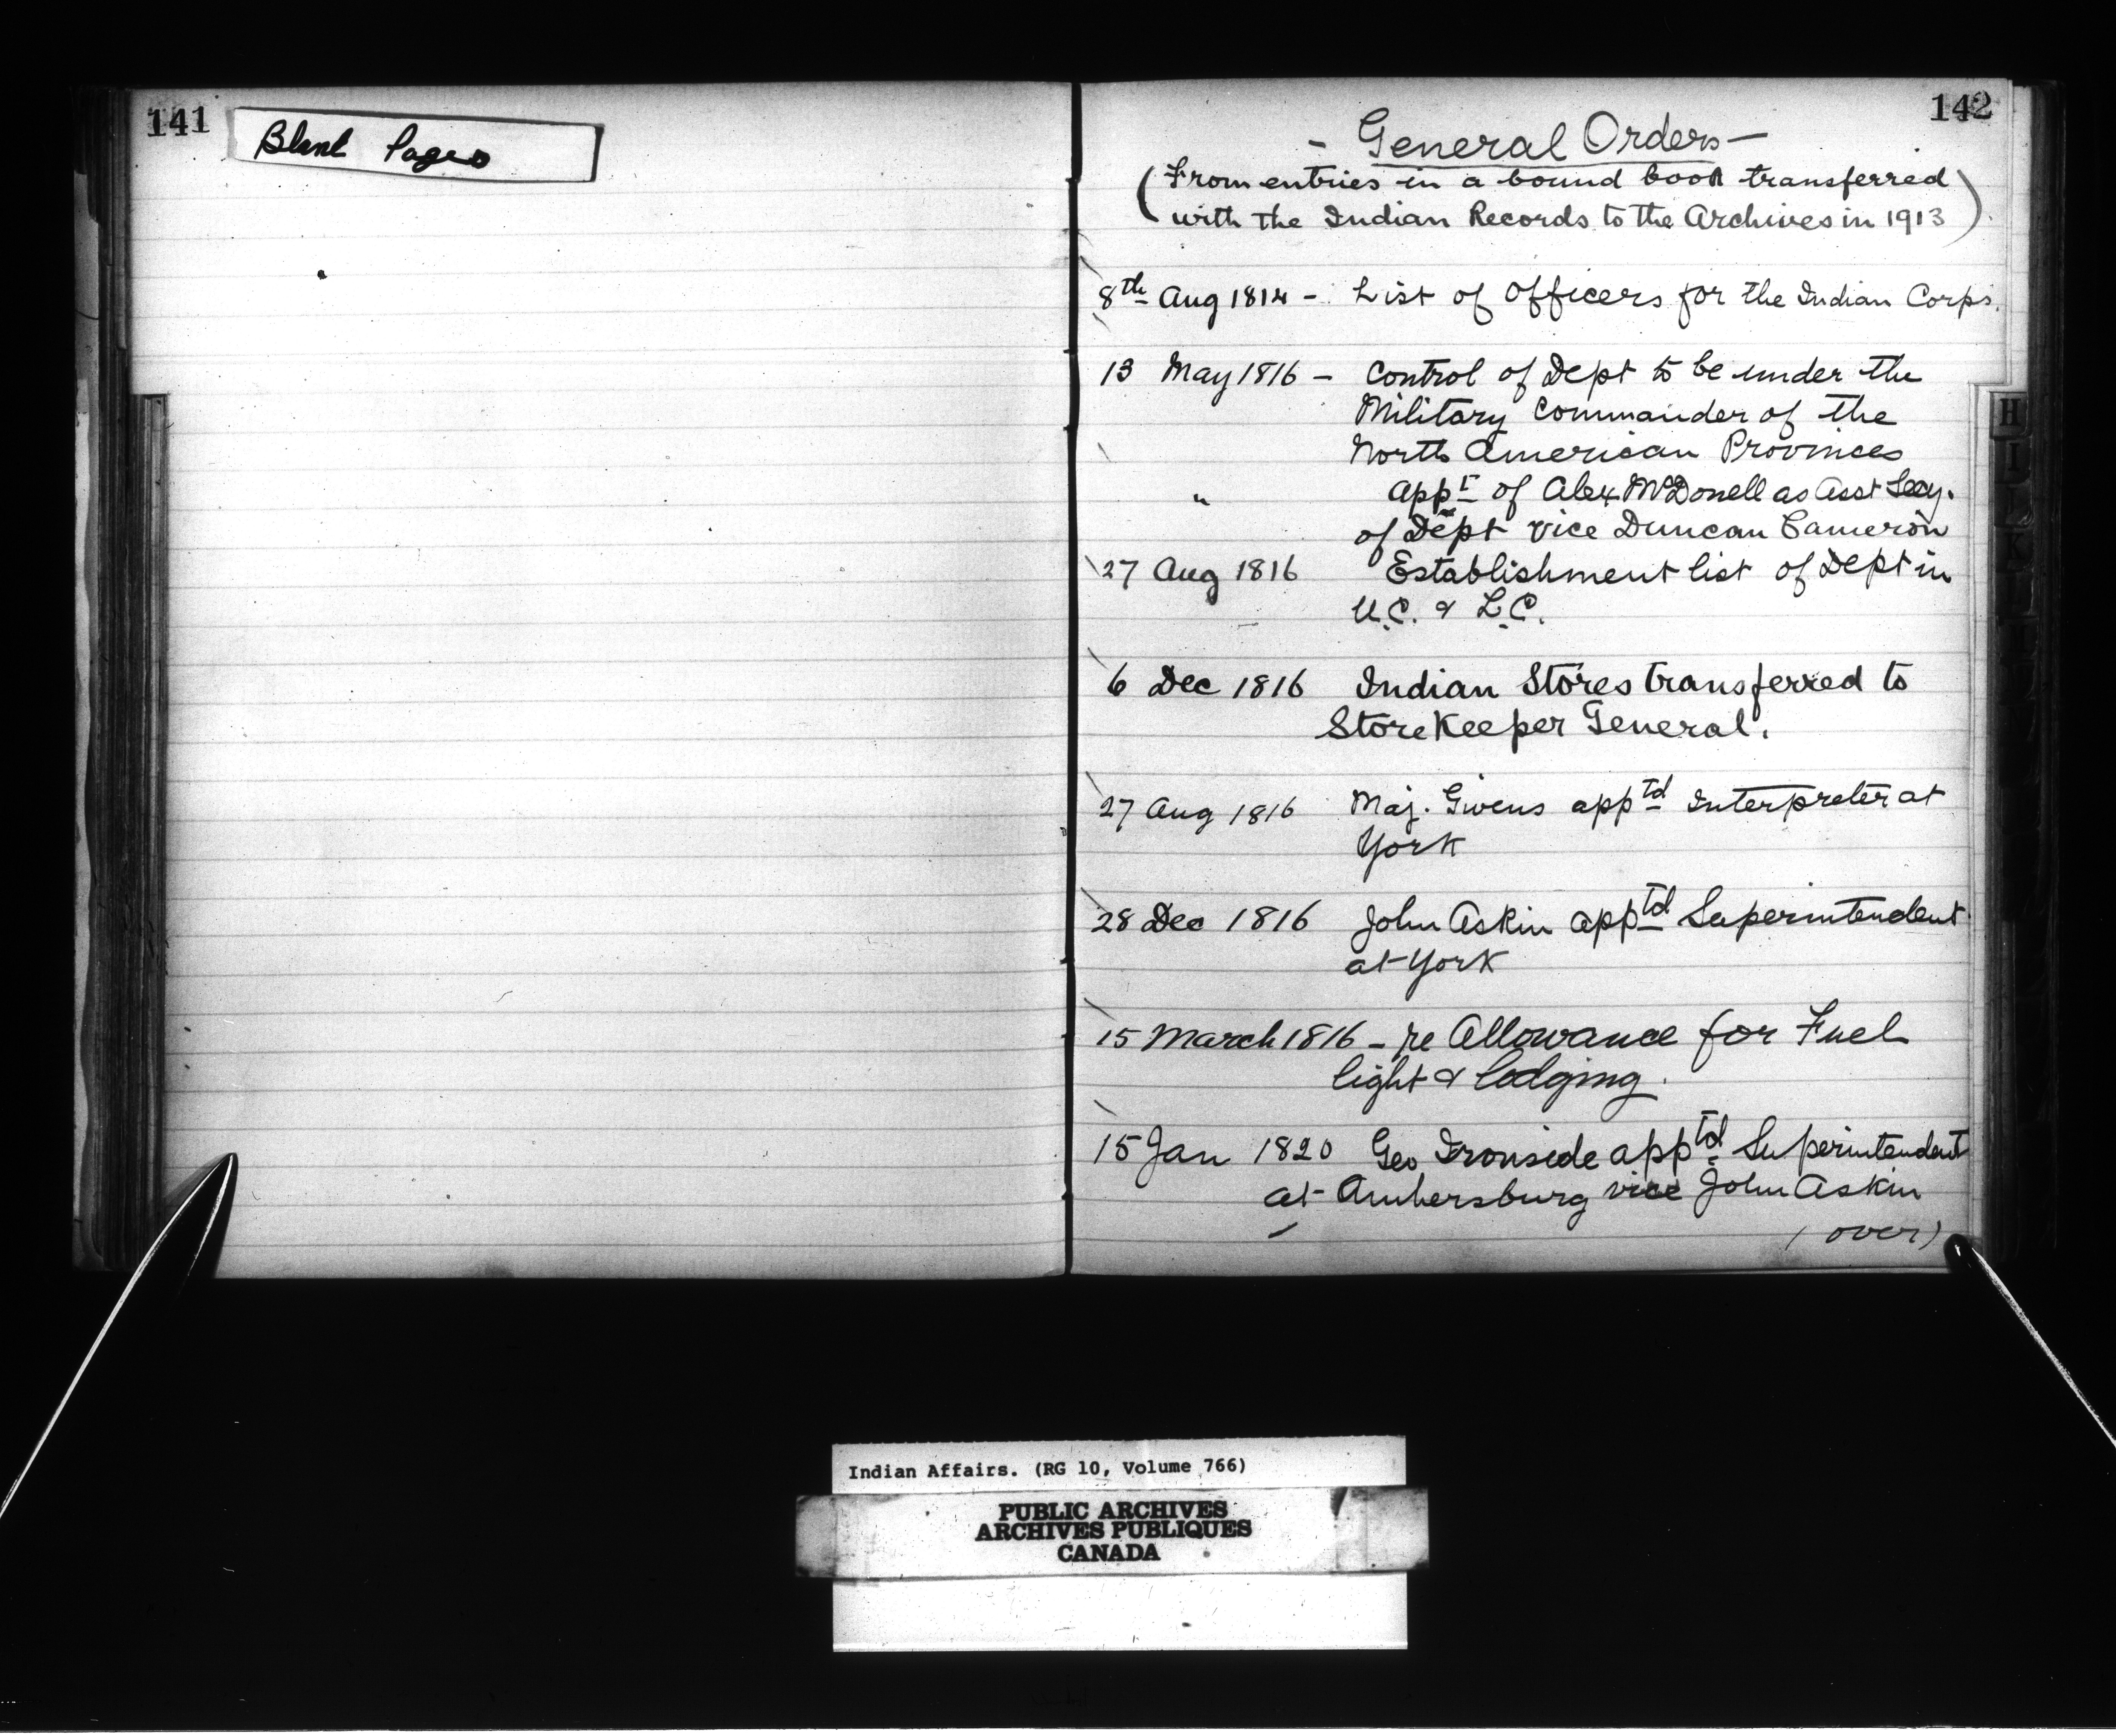 141
Blank Pages
142
- General Orders -
(From entries in a bound book transferred
with the Indian Records to the Archives in 1913)
8th Aug 1814 - List of Officers for the Indian Corps.
13 May 1816 - Control of Dept to be under the
Military Commander of the
North American Provinces
" appt of Alex McDonell as Asst Secy.
of Dept vice Duncan Cameron
27 Aug 1816 Establishment list of Dept in
U.C. & L.C.
6 Dec 1816 Indian Stores transferred to
StoreKeeper General.
27 Aug 1816 Maj. Givens apptd Interpreter at
York
28 Dec 1816 John Askin apptd Superintendent
at York
15 March 1816 - re Allowance for Fuel
light & lodging.
15 Jan 1820 Geo Ironside apptd Superintendent
at Amhersburg vice John Askin
(over)
H
I
L
K
Indian Affairs. (RG 10, Volume 766)
PUBLIC ARCHIVES
ARCHIVES PUBLIQUES
CANADA